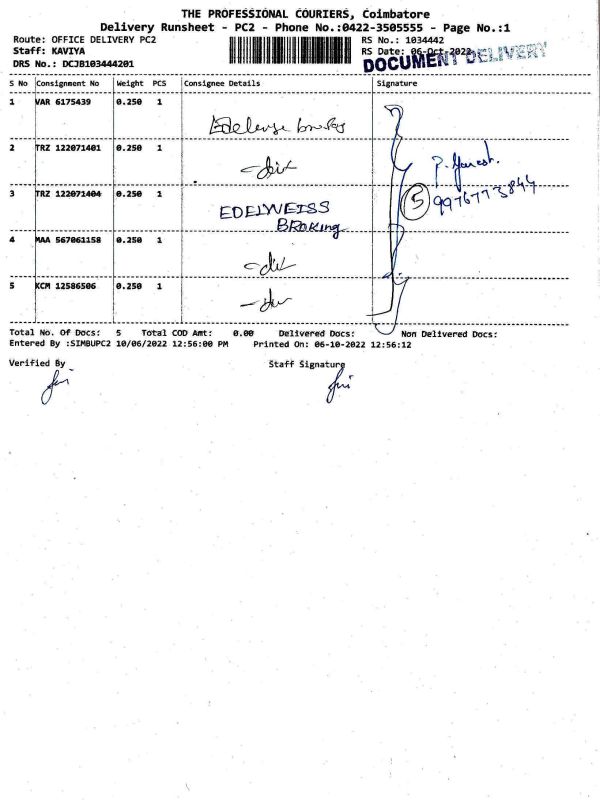 THE PROFESSIONAL COURIERS, Coimbatore
Delivery Runsheet - PC2 - Phone No.:0422-3505555 - Page No.:1
Route: OFFICE DELIVERY PC2
RS No.: 1034442
Staff: KAVIYA
RS Date: 06-Oct-2022
DRS No.: DCJB103444201
DOCUMENT DELIVERY
S No Consignment No Weight PCS Consignee Details Signature
1 VAR 6175439 0.250 1
2 TRZ 122071401 0.250 1
3 TRZ 122071404 0.250 1 EDELWEISS
BROKING
5 9976773844
4 MAA 567061158 0.250 1
5 KCM 12586506 0.250 1
Total No. Of Docs: 5 Total COD Amt: 0.00 Delivered Docs: Non Delivered Docs:
Entered By :SIMBUPC2 10/06/2022 12:56:00 PM Printed On: 06-10-2022 12:56:12
Verified By Staff Signature